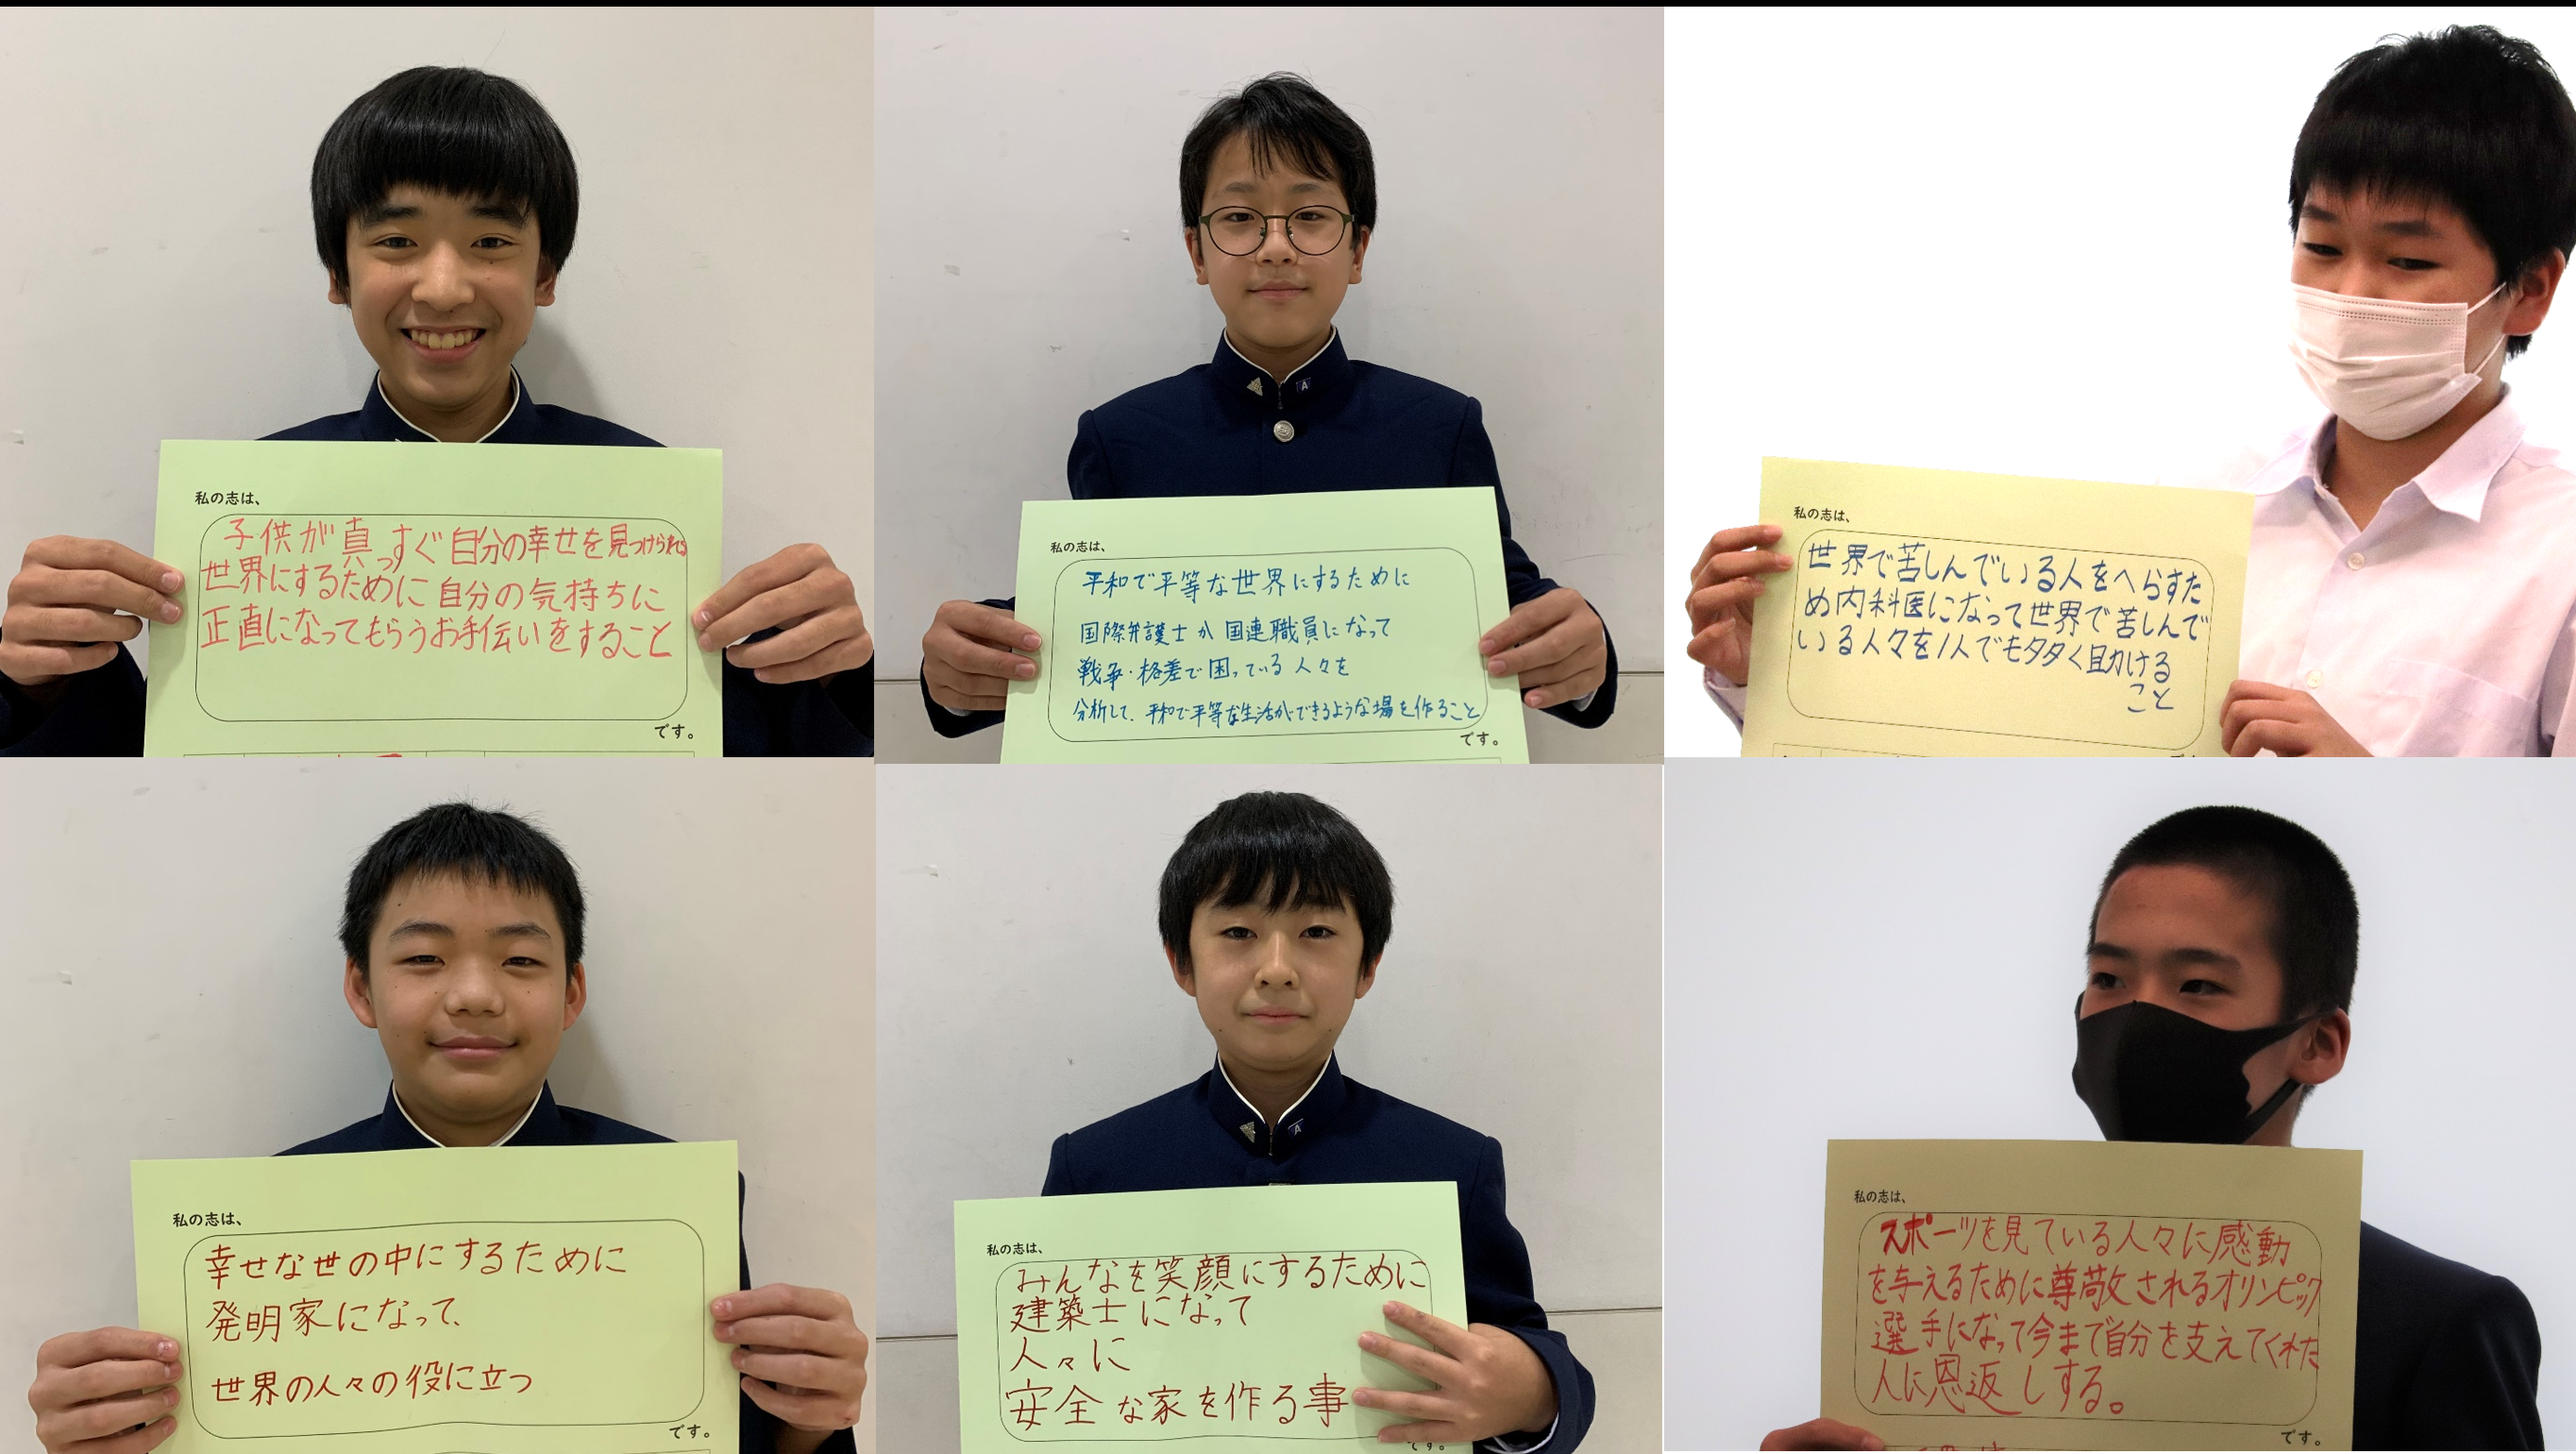 私の志は、
子供が真っすぐ自分の幸せを見つけられる
世界にするために自分の気持ちに
正直になってもらうお手伝いをすること
です。
私の志は、
平和で平等な世界にするために
国際弁護士か国連職員になって
戦争・格差で困っている人々を
分析して、平和で平等な生活ができるような場を作ること
です。
私の志は、
世界で苦しんでいる人をへらすた
め内科医になって世界で苦しんで
いる人々を1人でも多く助ける
こと
私の志は、
幸せな世の中にするために
発明家になって、
世界の人々の役に立つ
です。
私の志は、
みんなを笑顔にするために
建築士になって
人々に
安全な家を作る事
です。
私の志は、
スポーツを見ている人々に感動
を与えるために尊敬されるオリンピック
選手になって今まで自分を支えてくれた
人に恩返しする。
です。